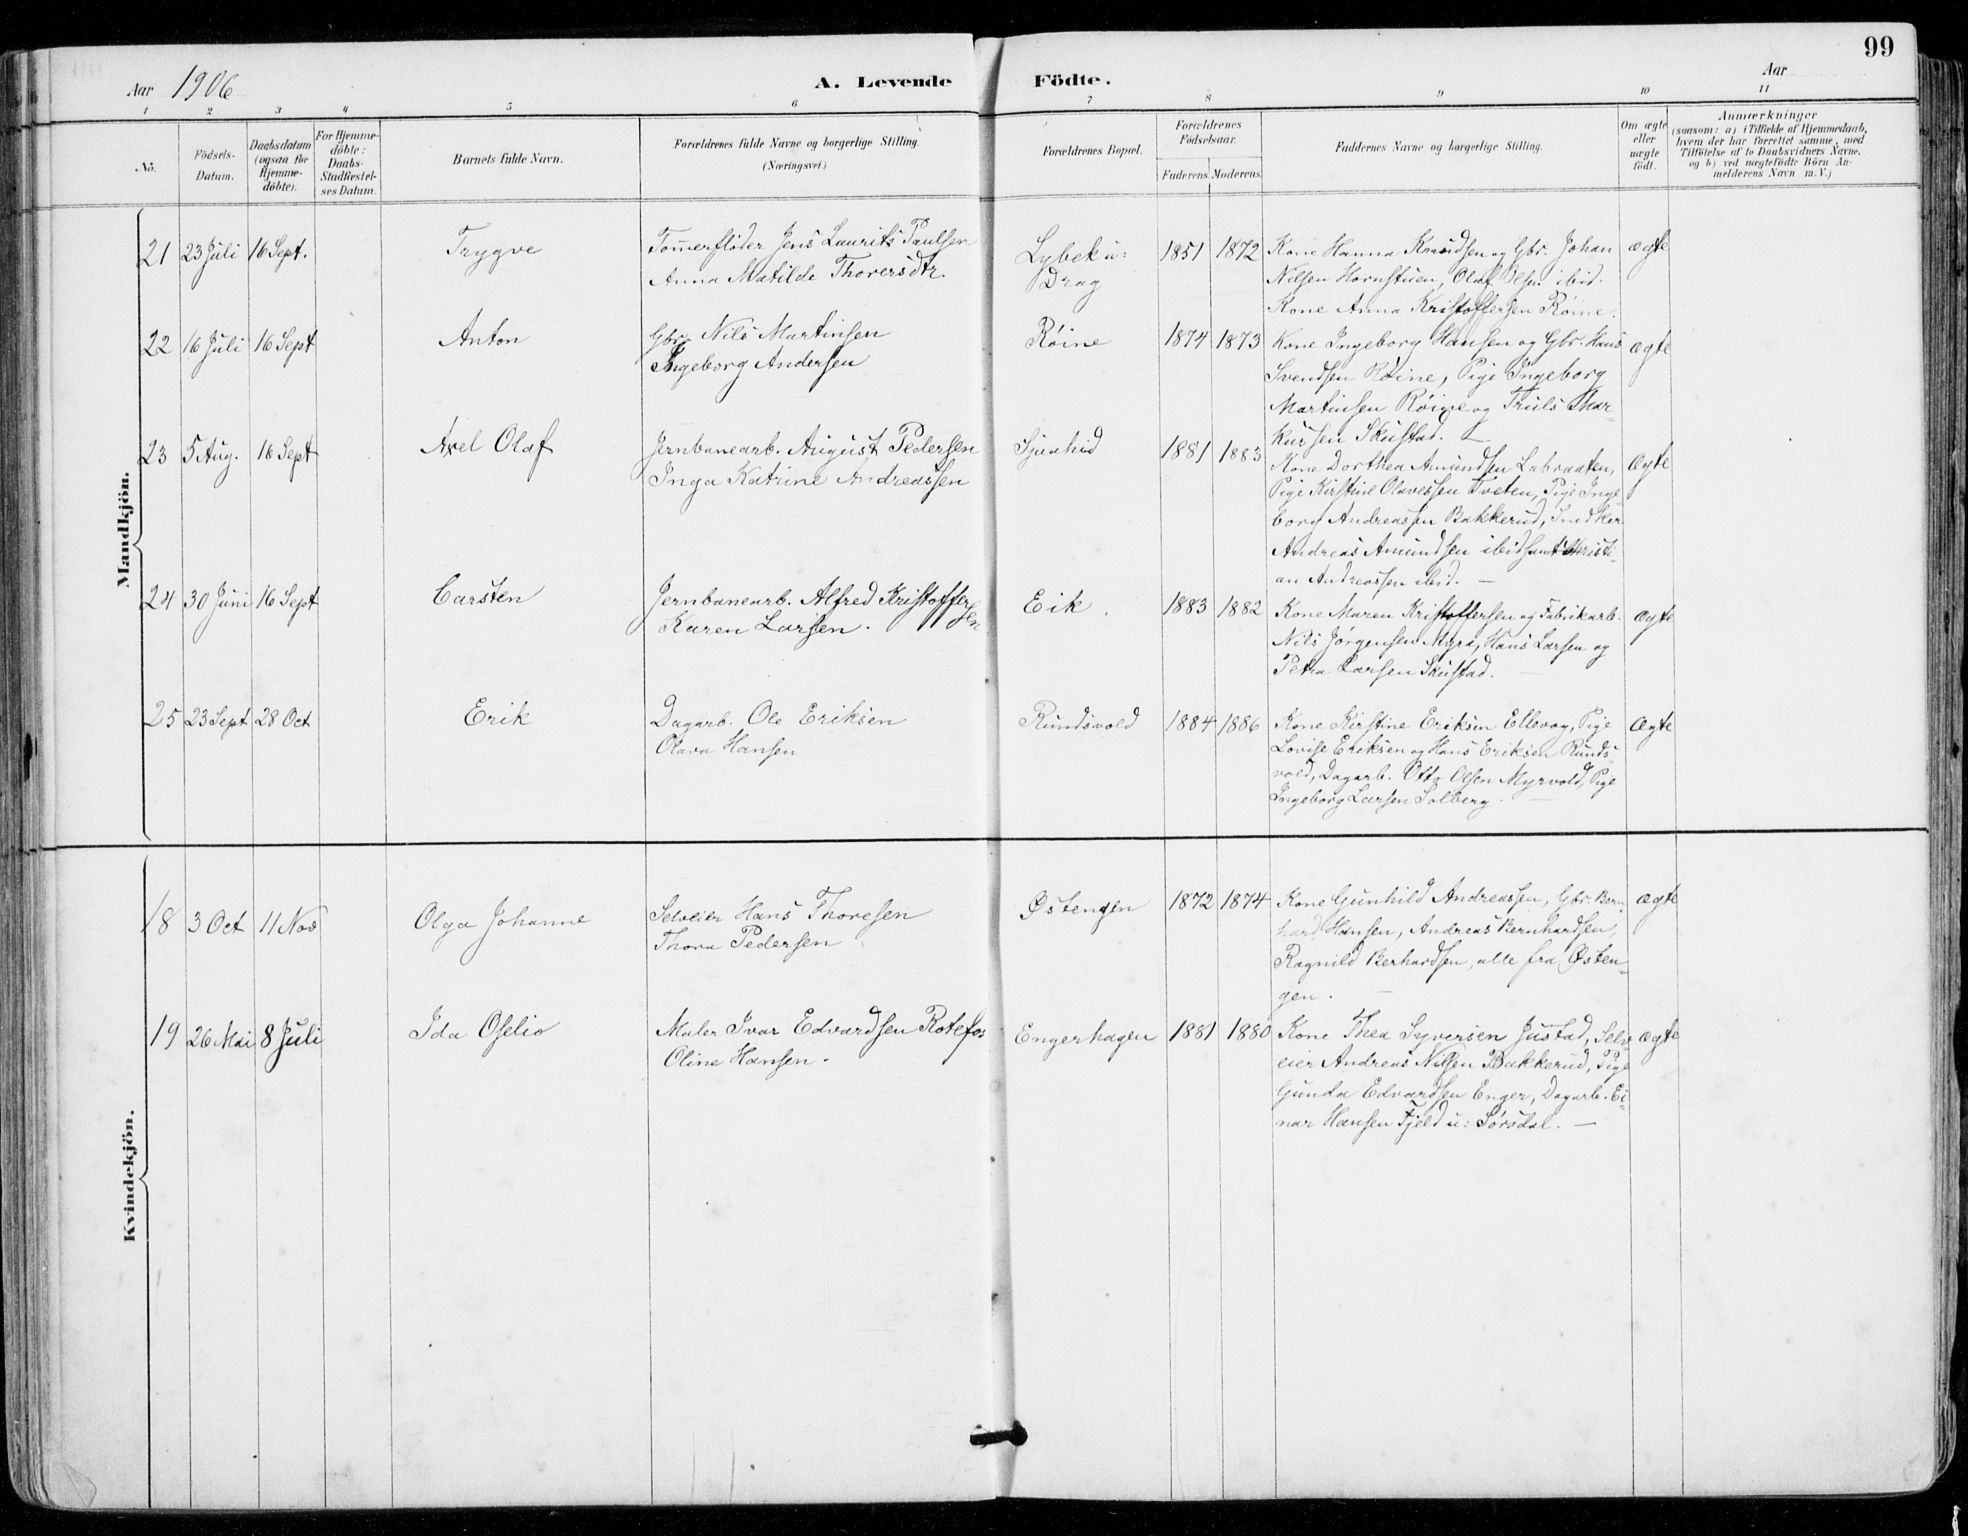 99
Aar 1906
A. Levende Födte.
Aar
1 2 3 4 5 6 7 8 9 10 11
No.
Födsels-
Datum.
Daabsdatum
(ogsaa for
Hjemme-
döbte).
For Hjemme-
döbte:
Daabs-
Stadfæstel-
ses Datum.
Barnets fulde Navn.
Forældrenes fulde Navne og borgerlige Stilling.
(Næringsvei.)
Forældrenes Bopæl.
Forældrenes
Födselsaar.
Faderens. Moderens.
Faddernes Navne og borgerlige Stilling.
Om ægte
eller
uægte
födt.
Anmærkninger
(saasom: a) i Tilfælde af Hjemmedaab,
hvem der har forrettet samme, med
Tilföielse af to Daabsvidners Navne,
og b) ved uægtefödte Börn An-
melderens Navn m. V.)
Mandkjön.
21 23 Juli 16 Sept. Trygve
Tomerfløder Jens Laurits Paulsen
Anna Matilde Thorersdtr.
Lybek u:
Drag
1851 1872
Kone Hanna Knudsen og Gbr. Johan
Nilsen Hornstuen, Olaf Olsen ibid.
Kone Anna Kristoffersen Røine.
ægte
22 16 Juli 16 Sept Anton
Gbr. Nils Martinsen
Ingeborg Andersen
Røine
1874 1873
Kone Ingeborg Hansen og Gbr. Hans
Svendsen Røine, Pige Ingeborg
Martinsen Røine og Truls Mar-
kussen Skustad.
ægte
23 5 Aug. 16 Sept Axel Olaf
Jernbanearb. August Pedersen
Inga Katrine Andreassen
1881 1883
Kone Dorthea Amundsen Labraaten,
Pige Kirstine Olavessen Tveten, Pige Inge
borg Andreassen Bakkerud, Snedker
Andreas Amundsen ibid samt Kristi-
an Andreassen ibid. —
ægte
24 30 Juni 16 Sept Carsten
Jernbanearb. Alfred Kristoffer
sen
Karen Larsen.
Eik.
1883 1882
Kone Maren Kristoffersen og Fabrikarb.
Nils Jørgensen Myra, Hans Larsen og
Petra Larsen Skustad.
ægte
25 23 Sept 28 Oct Erik
Dagarb. Ole Eriksen
Olava Hansen
Rundsvold
1884 1886
Kone Kirstine Eriksen Ellevog, Pige
Lovise Eriksen og Hans Eriksen Runds-
vold, Dagarb. Otto Olsen Myrvold, Pige
Ingeborg Larsen Solberg. —
ægte
Kvindekjön.
18 3 Oct 11 Nov Olga Johanne
Selveier Hans Thoresen
Thora Pedersen
Østengen
1872 1874
Kone Gunhild Andreassen, Gbr. Bern-
hard Hansen, Andreas Bernhardsen,
Ragnild Berhardsen, alle fra Østen-
gen. —
ægte
19 26 Mai 8 Juli Ida Oselio
Maler Ivar Edvardsen Rotefos
Oline Hansen.
Engerhagen
1881 1880
Kone Thea Syversen Justad, Selv-
eier Andreas Nilsen Bakkerud, Pige
Gunda Edvardsen Enger, Dagarb. Ei-
nar Hansen Fjeld u: Sørsdal. —
ægte